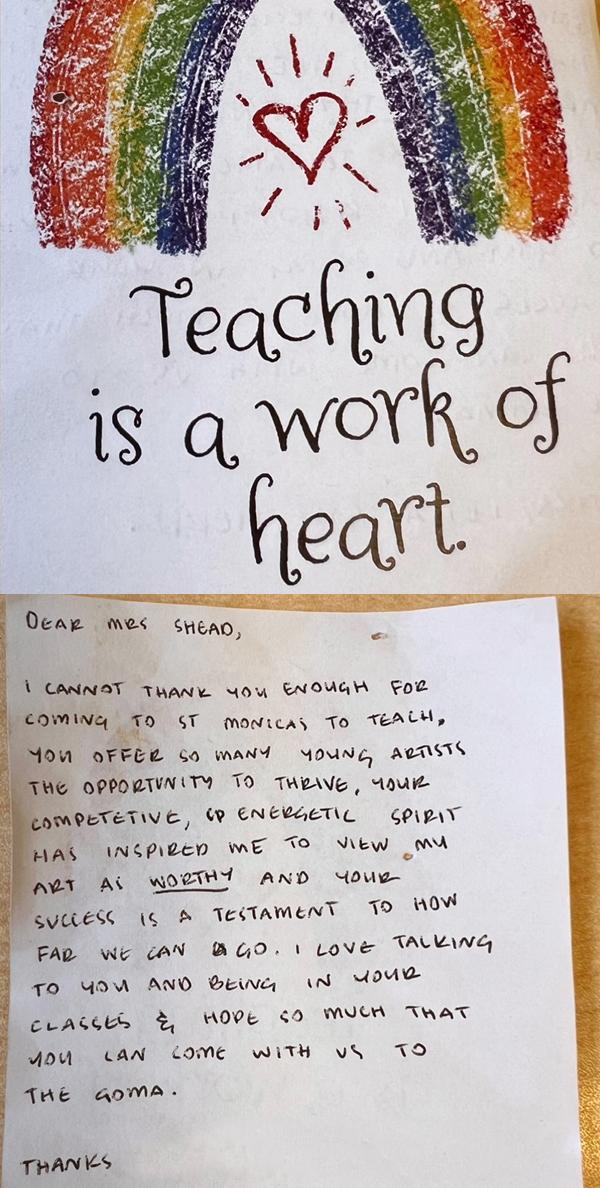 Teaching
is a work of
heart.
DEAR MRS SHEAD,
I CANNOT THANK YOU ENOUGH FOR
COMING TO ST MONICAS TO TEACH,
YOU OFFER SO MANY YOUNG ARTISTS
THE OPPORTUNITY TO THRIVE, YOUR
COMPETETIVE, ENERGETIC SPIRIT
HAS INSPIRED ME TO VIEW MY
ART AS WORTHY AND YOUR
SUCCESS IS A TESTAMENT TO HOW
FAR WE CAN GO. I LOVE TALKING
TO YOU AND BEING IN YOUR
CLASSES & HOPE SO MUCH THAT
YOU CAN COME WITH US TO
THE GOMA.
THANKS